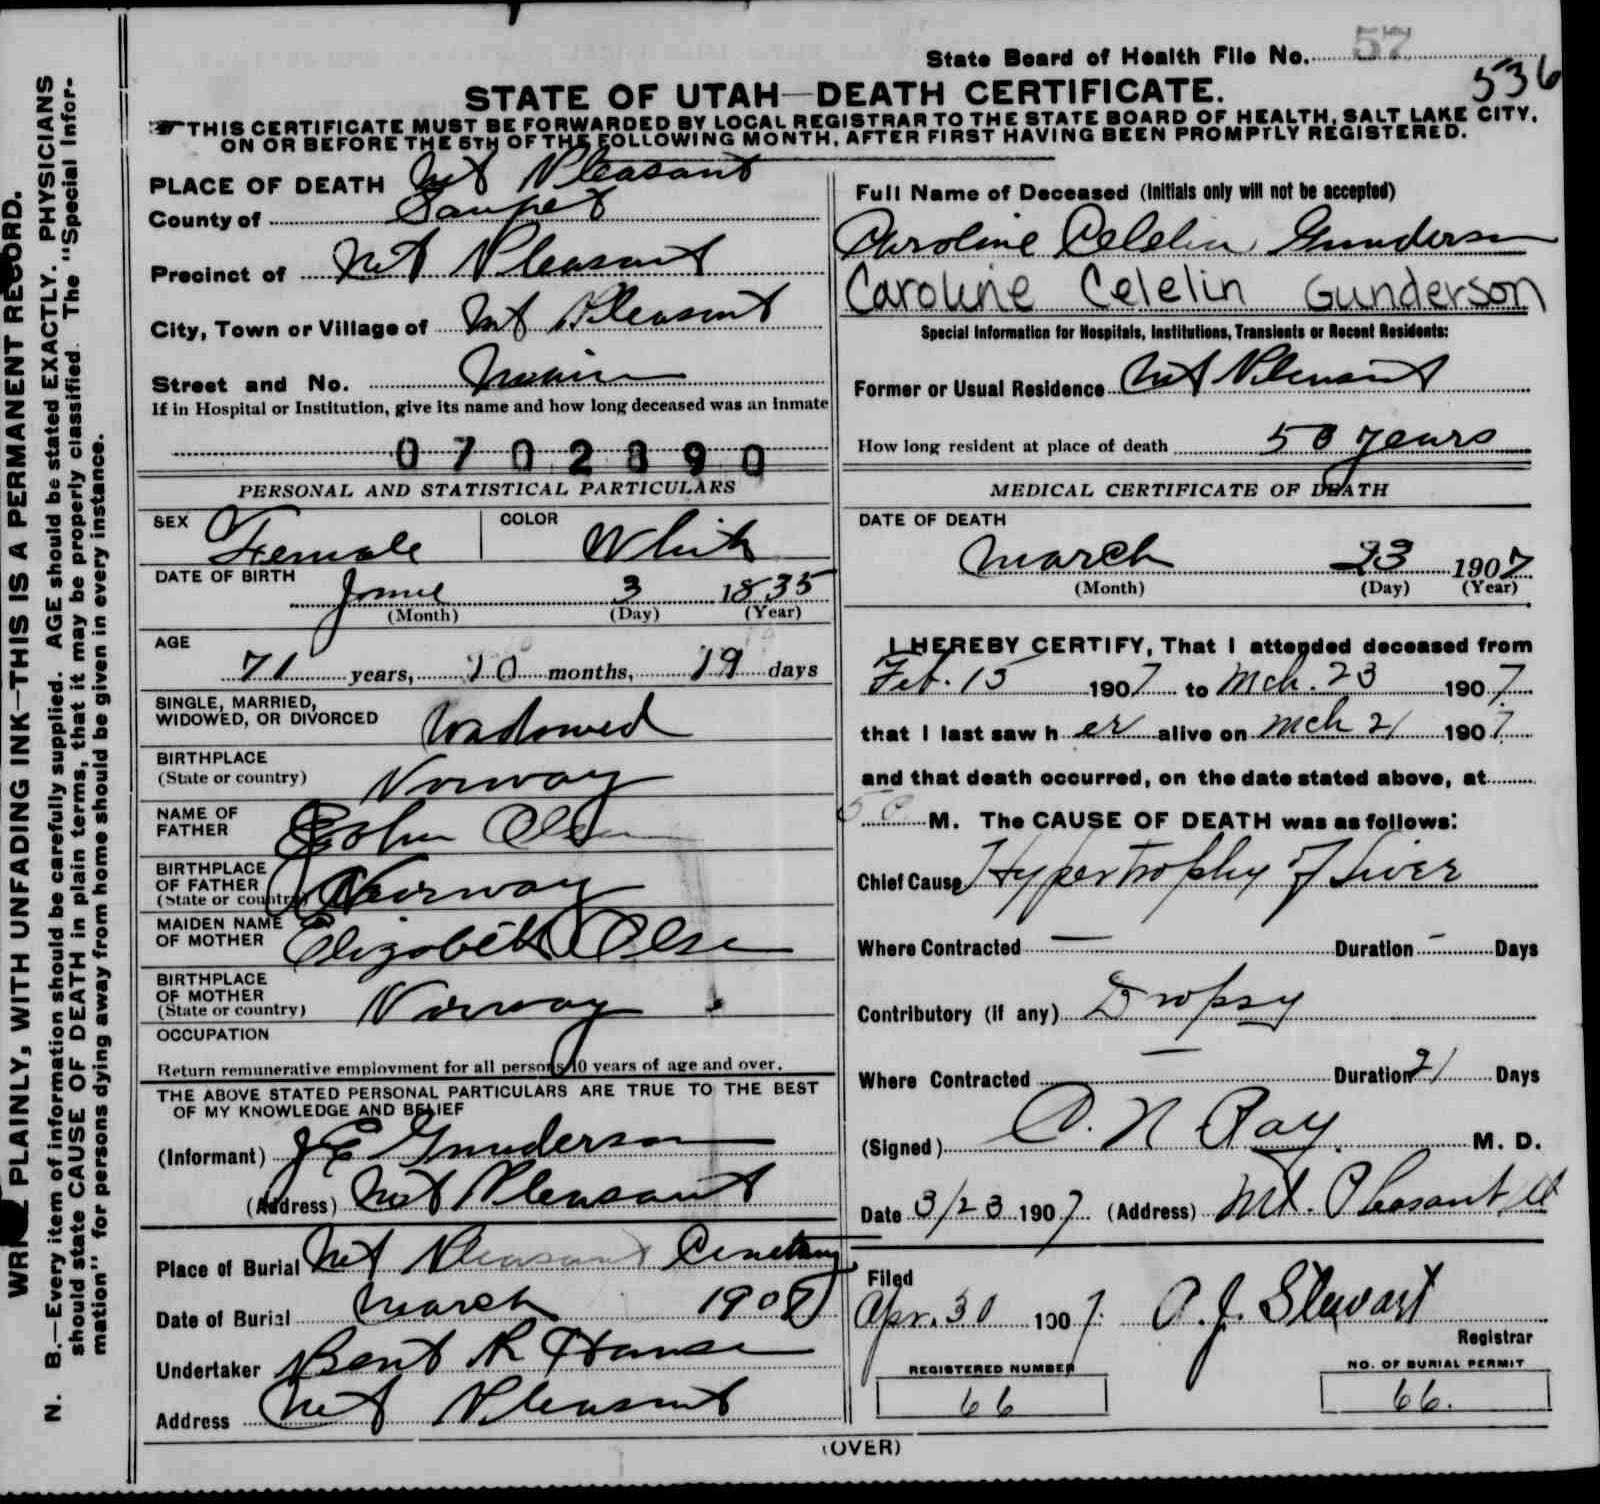 State Board of Health File No. 57
536
STATE OF UTAH—DEATH CERTIFICATE.
THIS CERTIFICATE MUST BE FORWARDED BY LOCAL REGISTRAR TO THE STATE BOARD OF HEALTH, SALT LAKE CITY,
ON OR BEFORE THE 5TH OF THE FOLLOWING MONTH, AFTER FIRST HAVING BEEN PROMPTLY REGISTERED.
WRITE PLAINLY, WITH UNFADING INK—THIS IS A PERMANENT RECORD.
N. B.—Every item of information should be carefully supplied. AGE should be stated EXACTLY. PHYSICIANS
should state CAUSE OF DEATH in plain terms, that it may be properly classified. The "Special Infor-
mation" for persons dying away from home should be given in every instance.
PLACE OF DEATH Mt Pleasant
County of Sanpet
Precinct of Mt Pleasant
City, Town or Village of Mt Pleasant
Street and No.
If in Hospital or Institution, give its name and how long deceased was an inmate
0702890
PERSONAL AND STATISTICAL PARTICULARS
SEX Female COLOR White
DATE OF BIRTH
June 3 1835
(Month) (Day) (Year)
AGE
71 years, 10 months, 19 days
SINGLE, MARRIED,
WIDOWED, OR DIVORCED Widowed
BIRTHPLACE
(State or country) Norway
NAME OF
FATHER John Olsen
BIRTHPLACE
OF FATHER
(State or country) Norway
MAIDEN NAME
OF MOTHER Elizabeth Olse
BIRTHPLACE
OF MOTHER
(State or country) Norway
OCCUPATION
Return remunerative employment for all persons 10 years of age and over.
THE ABOVE STATED PERSONAL PARTICULARS ARE TRUE TO THE BEST
OF MY KNOWLEDGE AND BELIEF
(Informant) J E Gunderson
(Address) Mt Pleasant
Place of Burial Mt Pleasant Cemetery
Date of Burial March 1907
Undertaker Bent R Hansen
Address Mt Pleasant
Full Name of Deceased (Initials only will not be accepted)
Caroline Celelin Gunderson
Caroline Celelin Gunderson
Special Information for Hospitals, Institutions, Transients or Recent Residents:
Former or Usual Residence Mt Pleasant
How long resident at place of death 50 years
MEDICAL CERTIFICATE OF DEATH
DATE OF DEATH
March 23 1907
(Month) (Day) (Year)
I HEREBY CERTIFY, That I attended deceased from
Feb. 15 1907 to Mch. 23 1907.
that I last saw her alive on Mch 21 1907
and that death occurred, on the date stated above, at
M. The CAUSE OF DEATH was as follows:
Chief Cause Hypertrophy of Liver
Where Contracted — Duration - Days
Contributory (if any) Dropsy
Where Contracted — Duration 21 Days
(Signed) O. N Ray. M. D.
Date 3/23 1907 (Address) Mt. Pleasant, U
Filed
Apr. 30 1907. A. J. Stewart
Registrar
REGISTERED NUMBER
66
NO. OF BURIAL PERMIT
66.
(OVER)